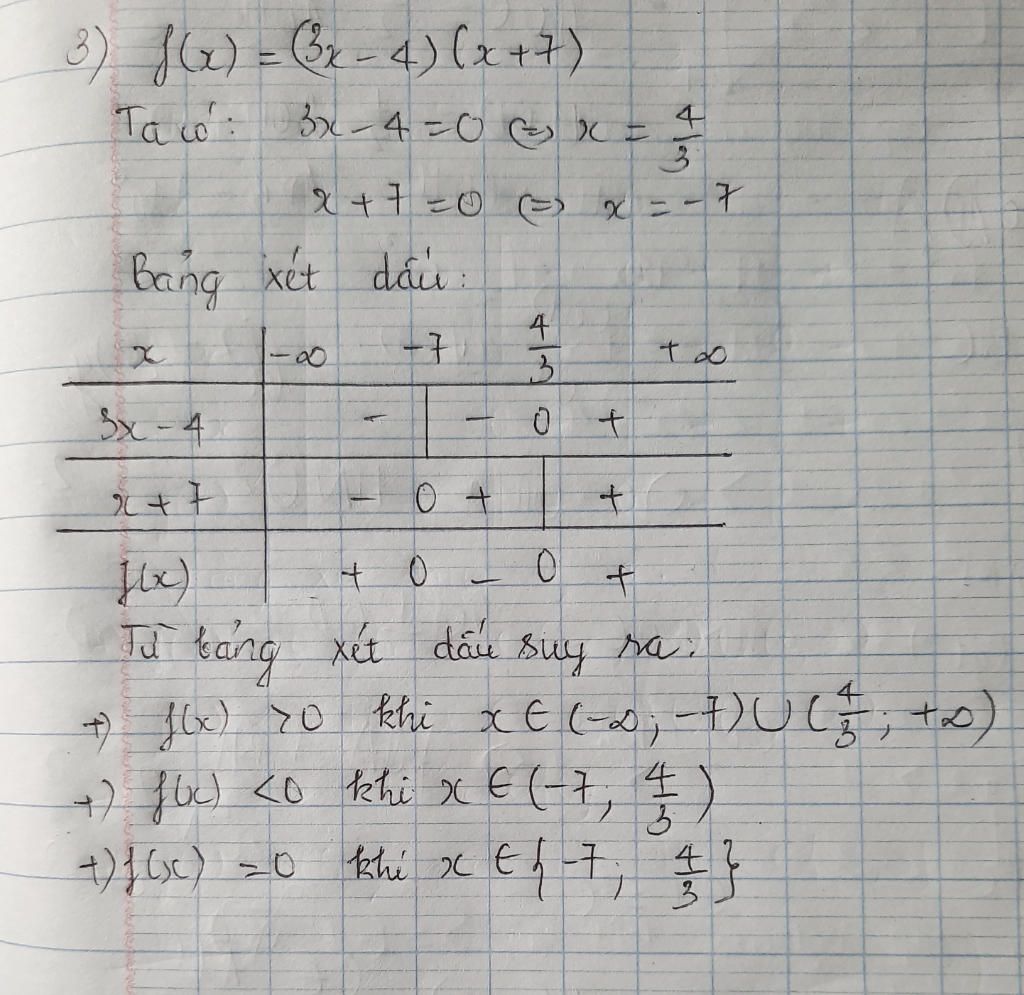 3) f(x) = (3x - 4)(x + 7)
Ta có: 3x - 4 = 0 <=> x = 4/3
x + 7 = 0 <=> x = -7
Bảng xét dấu:
x | -∞ -7 4/3 +∞
3x - 4 | - | - 0 +
x + 7 | - 0 + | +
f(x) | + 0 - 0 +
Từ bảng xét dấu suy ra:
+) f(x) > 0 khi x ∈ (-∞; -7) ∪ (4/3; +∞)
+) f(x) < 0 khi x ∈ (-7; 4/3)
+) f(x) = 0 khi x ∈ {-7; 4/3}